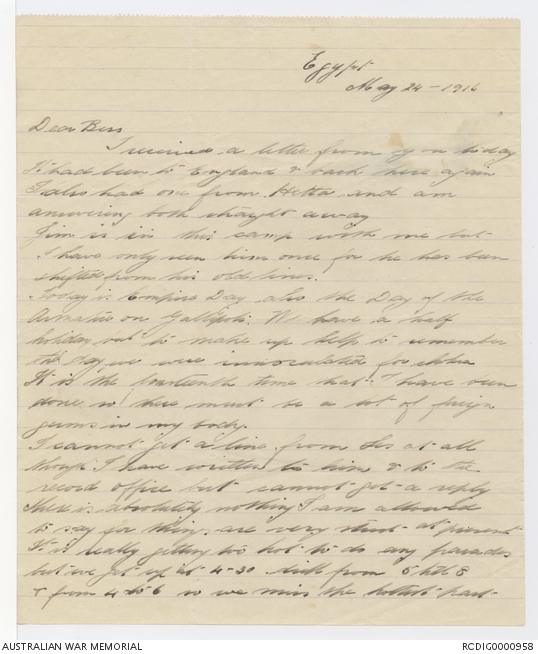 Egypt
May 24-1916
Dear Bess
I received a letter from you to day
It had been to England & back here again
I also had one from Hetta and am
answering both straight away
Jim is in this camp with me but
I have only seen him once for he has been
shifted from his old lines.
Today is Empire Day also the Day of the
Armistice on Gallipoli. We have a half
holiday but to make up help to remember
the day we were innoculated for chlra
It is the fourteenth time that I have been
done so there must be a lot of foreign
germs in my body.
I cannot get a line from Les at all
though I have written to him & to the
record office but cannot get a reply
There is absolutely nothing I am allowed
to say for things are very strict at present
It is really getting too hot to do any parades
but we get up at 4-30 drill from 5 till 8
& from 4 to 6 so we miss the hottest part
AUSTRALIAN WAR MEMORIAL
RCDIG0000958